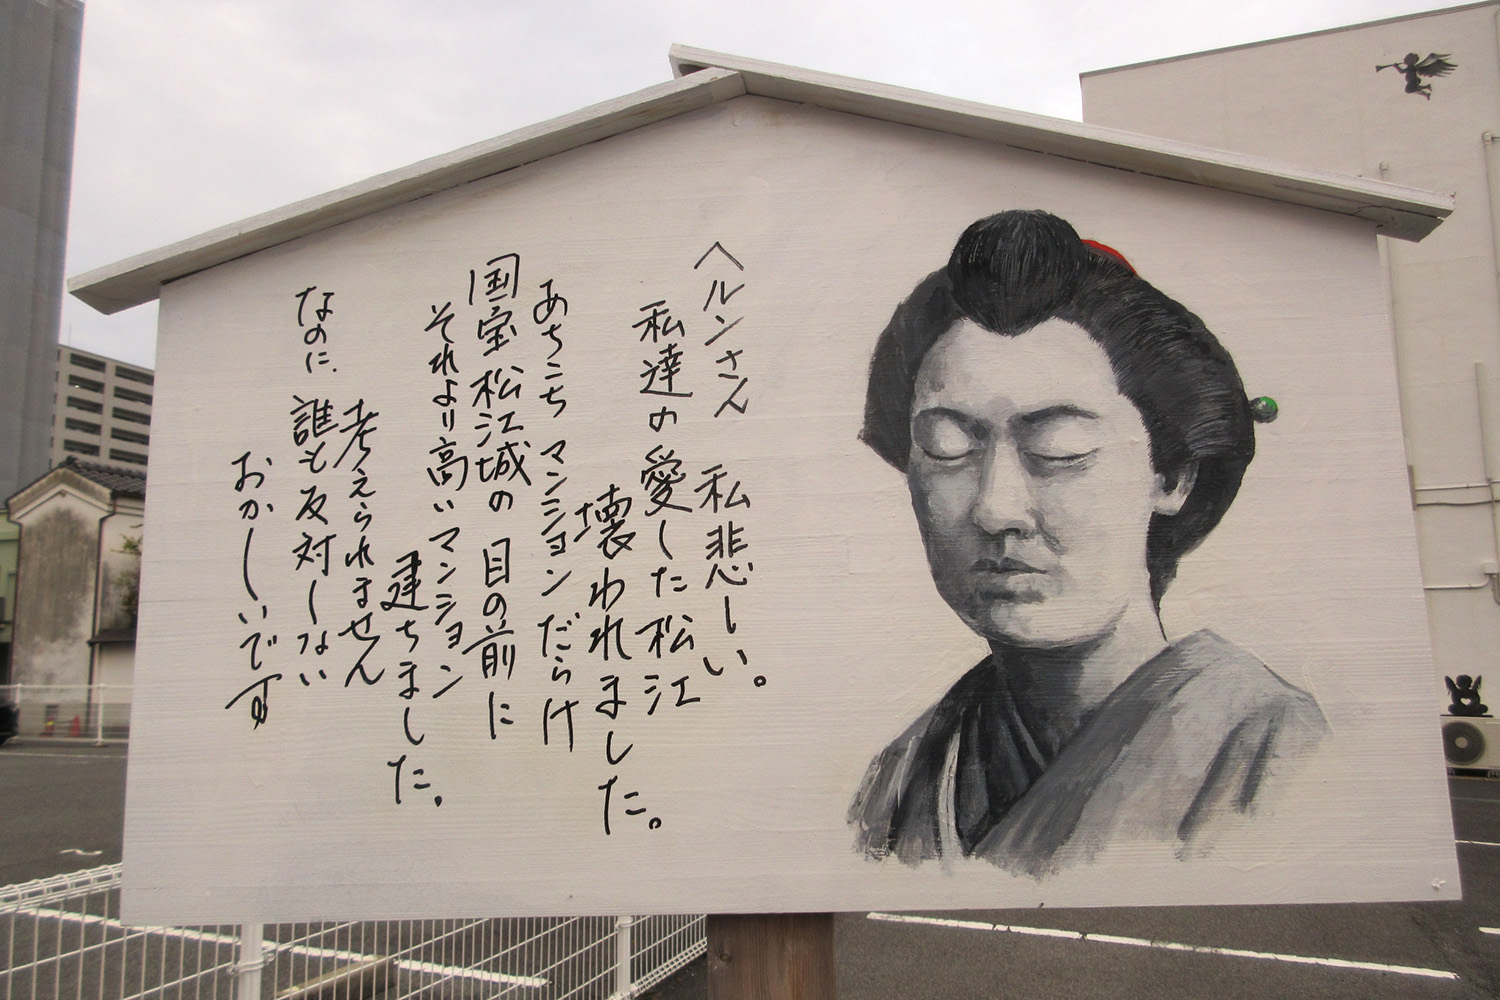 ヘルンさん 私悲しい。
私達の愛した松江
壊われました。
あちこち マンションだらけ
国宝 松江城の 目の前に
それより高いマンション
建ちました。
考えられません
なのに、誰も反対しない
おかしいです